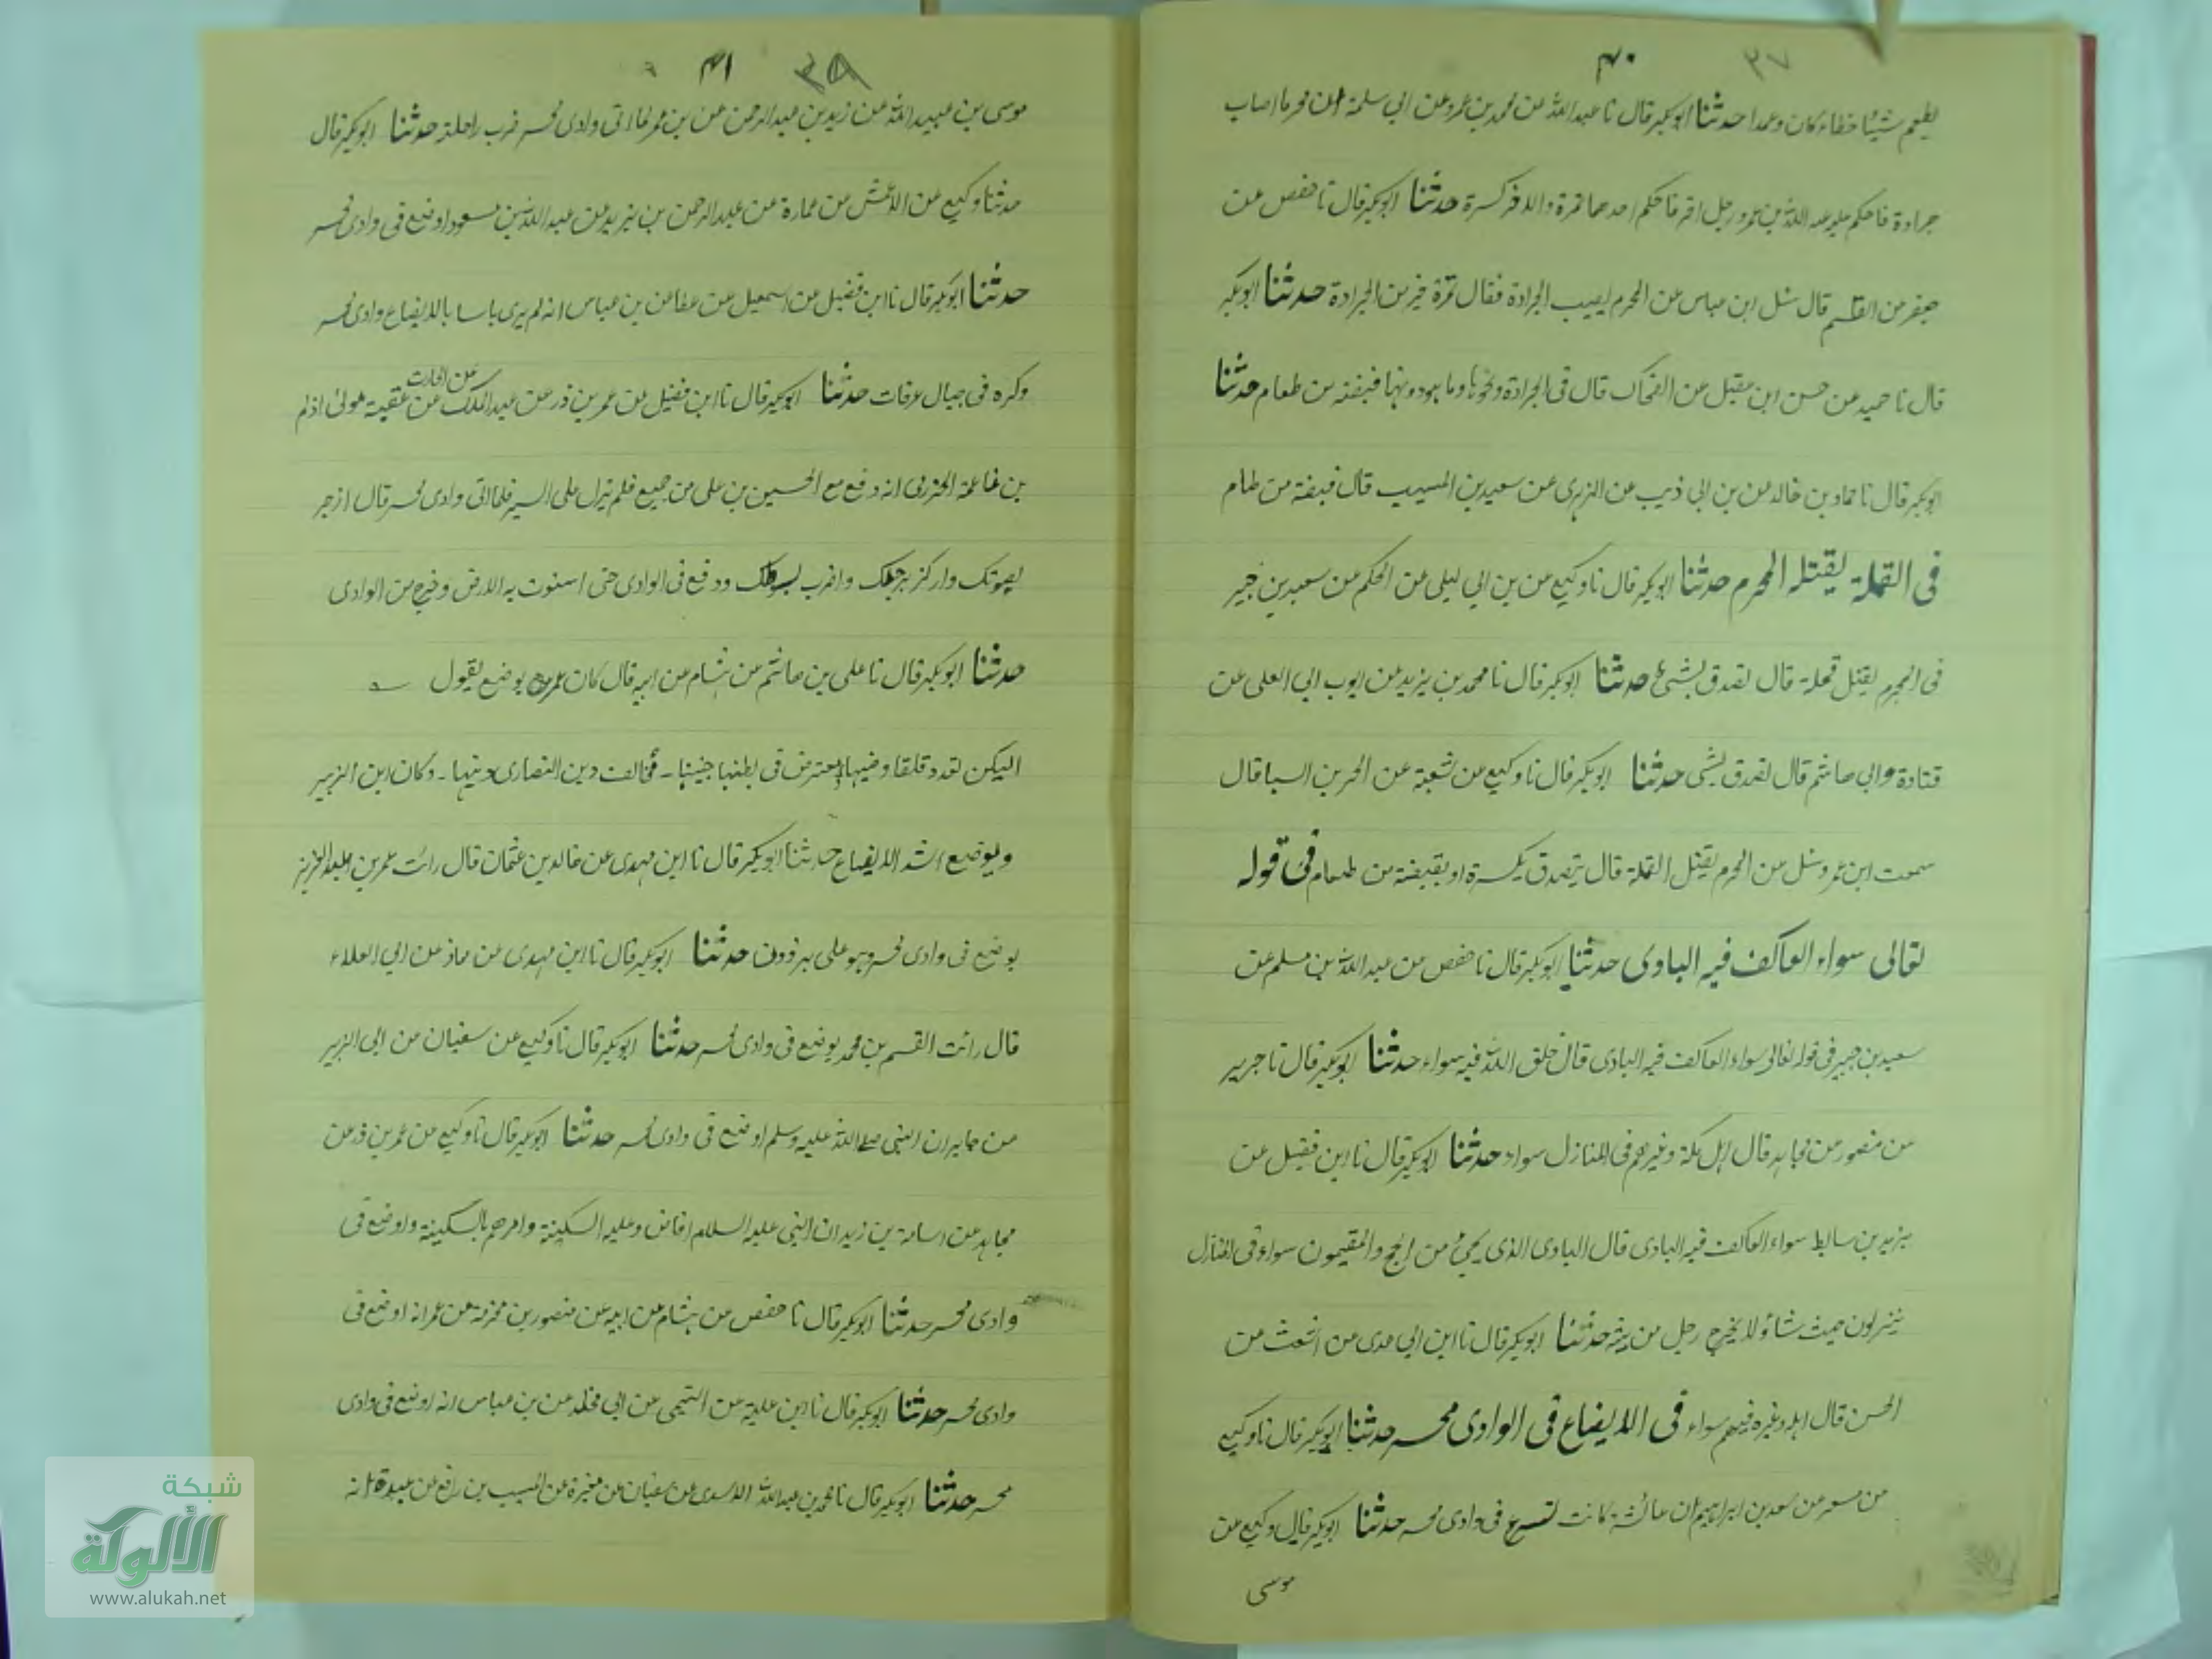 ٤٠ ٣٧
يطعم شيئا خطاء كان وعمدا حدثنا ابوبكر قال نا عبد الله عن محمد بن عمرو عن ابي سلمة ان محرما اصاب
جرادة فاحكم عليه عبد الله بن عمر ورجل اخر فاحكم احدهما تمرة والاخر كسرة حدثنا ابوبكر قال نا حفص عن
جعفر عن القسم قال سئل ابن عباس عن المحرم يصيب الجرادة فقال تمرة خير من الجرادة حدثنا ابوبكر
قال نا حميد عن حسن ابن عقيل عن الضحاك قال في الجرادة ونحوها وما هو دونها قبضة من طعام حدثنا
ابوبكر قال نا حماد بن خالد عن بن ابي ذيب عن الزهرى عن سعيد بن المسيب قال قبضة من طعام
فى القملة يقتله المحرم حدثنا ابوبكر قال نا وكيع عن بن ابي ليلى عن الحكم عن سعيد بن جبير
فى المحرم يقتل قملة قال تصدق بشئ حدثنا ابوبكر قال نا محمد بن يزيد عن ايوب ابي العلى عن
قتادة وابي هاشم قال تصدق بشى حدثنا ابوبكر قال نا وكيع عن شعبة عن الحر بن السبا قال
سمعت ابن عمر وسئل عن المحرم يقتل القملة قال يتصدق بكسرة او بقبضة من طعام فى قوله
تعالى سواء العاكف فيه البادى حدثنا ابوبكر قال نا حفص عن عبد الله بن مسلم عن
سعيد بن جبير فى قوله تعالى سواء العاكف فيه البادى قال خلق الله فيه سواء حدثنا ابوبكر قال نا جرير
عن منصور عن مجاهد قال اهل مكة وغيرهم فى المنازل سواء حدثنا ابوبكر قال نا ابن فضيل عن
يزيد بن سابط سواء العاكف فيه البادى قال البادى الذى يجئ من الحج والمقيمون سواء فى المنازل
ينزلون حيث شاؤ لا يخرج رجل من بيته حدثنا ابوبكر قال نا ابن ابي عدى عن اشعث عن
الحسن قال اهله وغيره فيهم سواء فى الايضاع فى الوادى محسر حدثنا ابوبكر قال نا وكيع
عن مسعر عن سعد بن ابراهيم ان عائشة كانت تسرع فى وادى محسر حدثنا ابوبكر قال وكيع عن
موسى
٤١ ٣٨
موسى بن عبيد الله عن زيد بن عبد الرحمن عن بن عمر لما اتى وادى محسر ضرب راحلته حدثنا ابوبكر قال
حدثنا وكيع عن الاعمش عن عمارة عن عبد الرحمن بن يزيد عن عبد الله بن مسعود اوضع فى وادى محسر
حدثنا ابوبكر قال نا ابن فضيل عن اسمعيل عن عطا عن بن عباس انه لم يرى باسا بالايضاع وادى محسر
وكره فى جبال عرفات حدثنا ابوبكر قال نا ابن فضيل عن عمر بن ذر عن عبد الملك عن الحارث عن عقبة مولى اذلم
بن ناعمة الحزرى انه دفع مع الحسين بن على من جميع فلم يزل على السير فلما اتى وادى محسر قال ازجر
بصوتك واركز برجلك واضرب بسوطك ودفع فى الوادى حتى استوت به الارض وخرج من الوادى
حدثنا ابوبكر قال نا على بن هاشم عن هشام عن ابيه قال كان عمر يوضع يقول
اليك تعدو قلقا وضينها معترض فى بطنها جنينها - مخالف دين النصارى دينها - وكان ابن الزبير
ويوضع اشد الايضاع حدثنا ابوبكر قال نا ابن مهدى عن خالد بن عثمان قال رائت عمر بن عبد العزيز
يوضع فى وادى محسر وهو على برذون حدثنا ابوبكر قال نا ابن مهدى عن معاذ عن ابي العلاء
قال رائت القسم بن محمد يوضع فى وادى محسر حدثنا ابوبكر قال نا وكيع عن سفيان عن ابى الزبير
عن جابر ان النبى صلى الله عليه وسلم اوضع فى وادى محسر حدثنا ابوبكر قال نا وكيع عن عمر بن ذر عن
مجاهد عن اسامة بن زيد ان النبى عليه السلام افاض وعليه السكينة وامرهم بالسكينة واوضع فى
وادى محسر حدثنا ابوبكر قال نا حفص عن هشام عن ابيه عن منصور بن مخرمة عن عمر انه اوضع فى
وادى محسر حدثنا ابوبكر قال نا ابن علية عن التيمى عن ابى مخلد عن بن عباس انه اوضع فى وادى
محسر حدثنا ابوبكر قال نا محمد بن عبد الله الاسدى عن سفيان عن مغيرة عن المسيب بن رافع عن عبيدة انه
شبكة
الألوكة
www.alukah.net